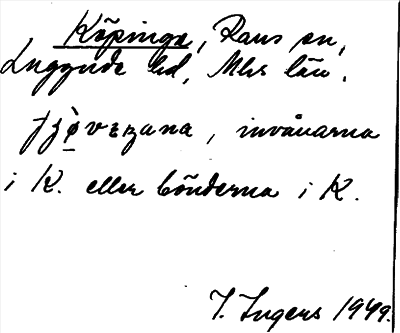 Köpinge, Raus sn,
Luggude hd, Mlhs län.
invånarna
i K. eller bönderna i K.
I. Ingers 1949.